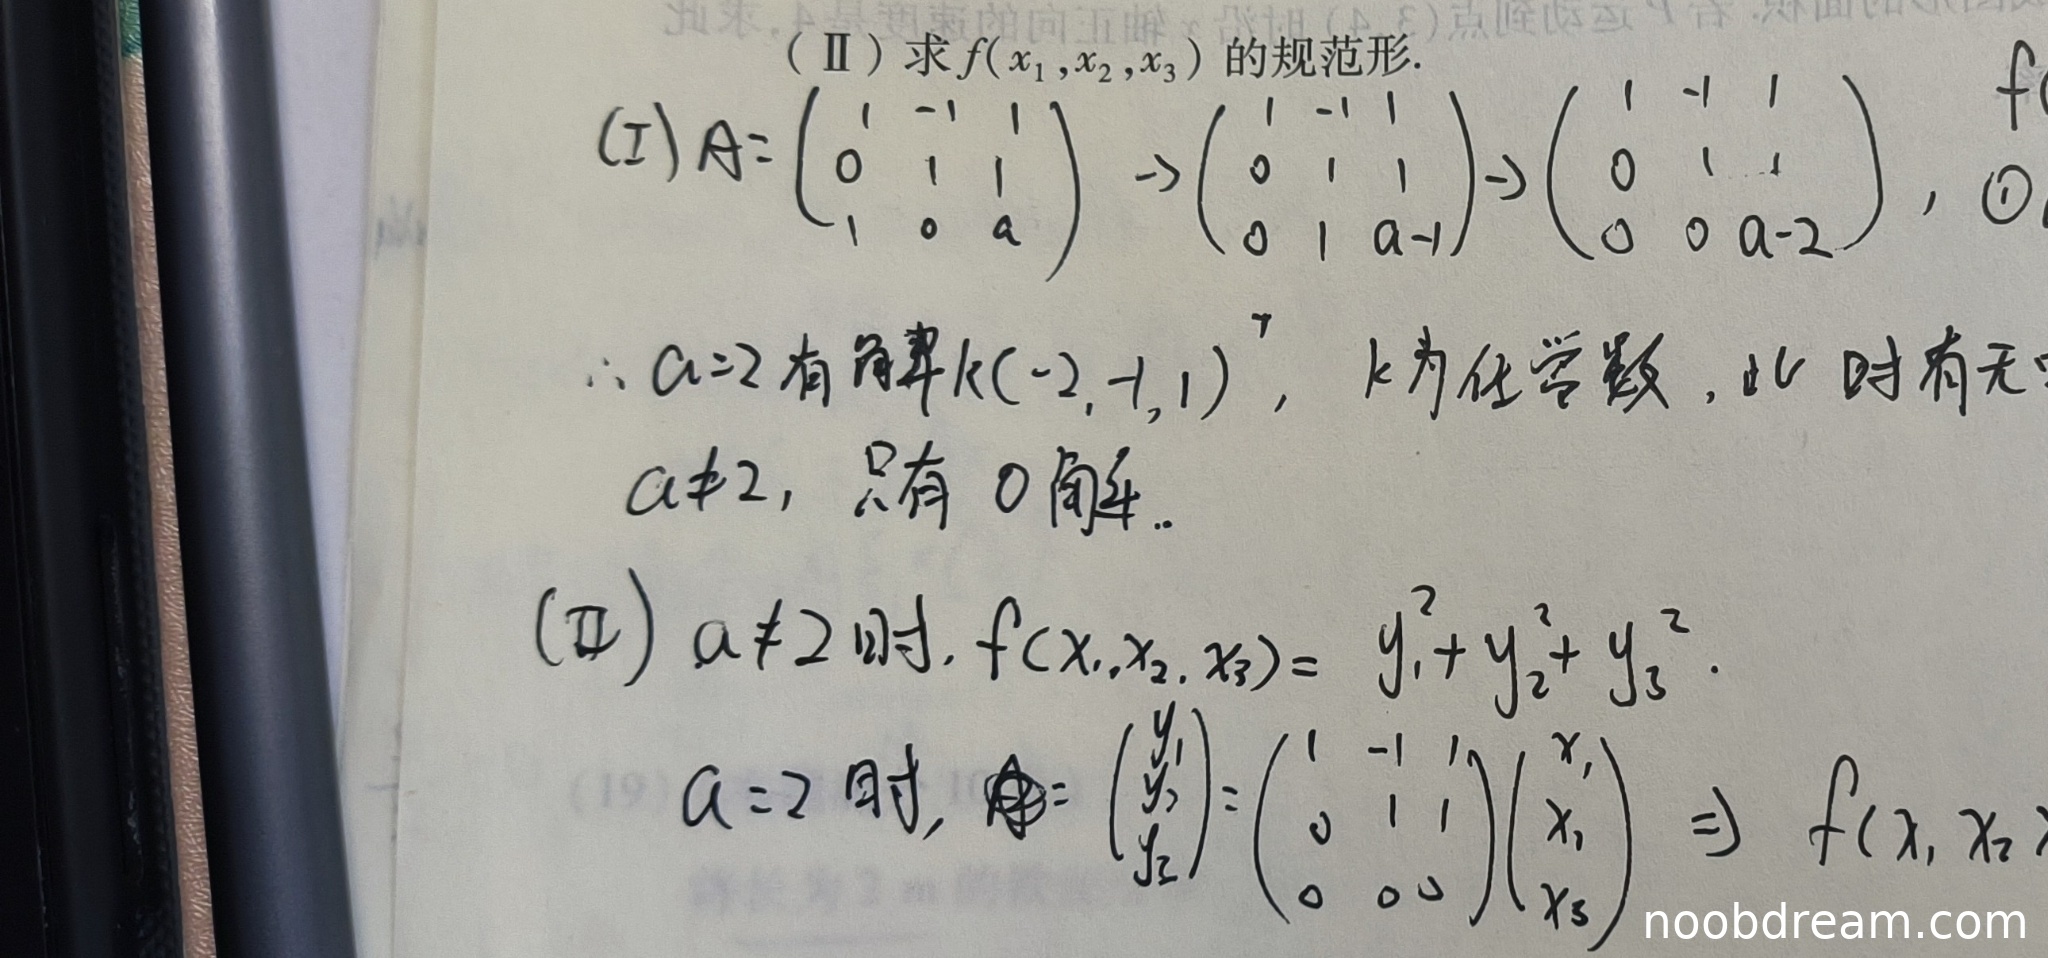 (Ⅱ)求f(x₁,x₂,x₃)的规范形.
(I) A= ( 1 -1 1 ; 0 1 1 ; 1 0 a ) → ( 1 -1 1 ; 0 1 1 ; 0 1 a-1 ) → ( 1 -1 1 ; 0 1 1 ; 0 0 a-2 ) , f(
①
∴ a=2 有解 k(-2,-1,1)ᵀ, k为任常数, 此时有无
a≠2, 只有 0 解..
(Ⅱ) a≠2时. f(x₁,x₂,x₃)= y₁²+y₂²+y₃².
a=2时, = ( y₁ ; y₂ ; y₂ ) = ( 1 -1 1 ; 0 1 1 ; 0 0 0 ) ( x₁ ; x₁ ; x₃ ) ⇒ f(x₁ x₂
(19)
noobdream.com